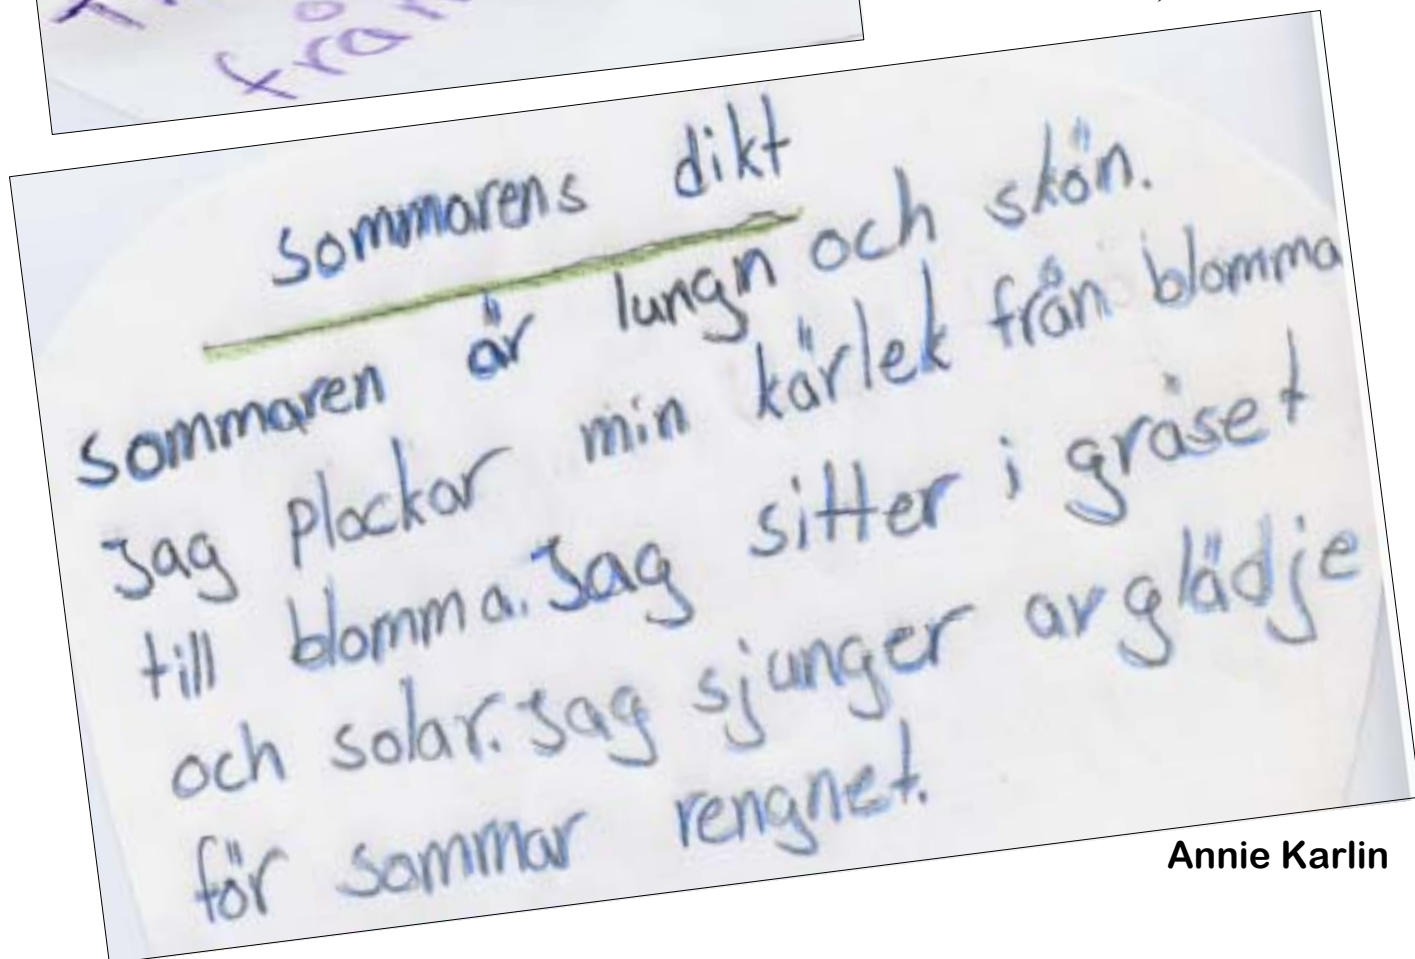 från
Sommarens dikt
Sommaren är lungn och skön.
Jag plockar min kärlek från blomma
till blomma. Jag sitter i gräset
och solar. Jag sjunger av glädje
för sommar rengnet.
Annie Karlin